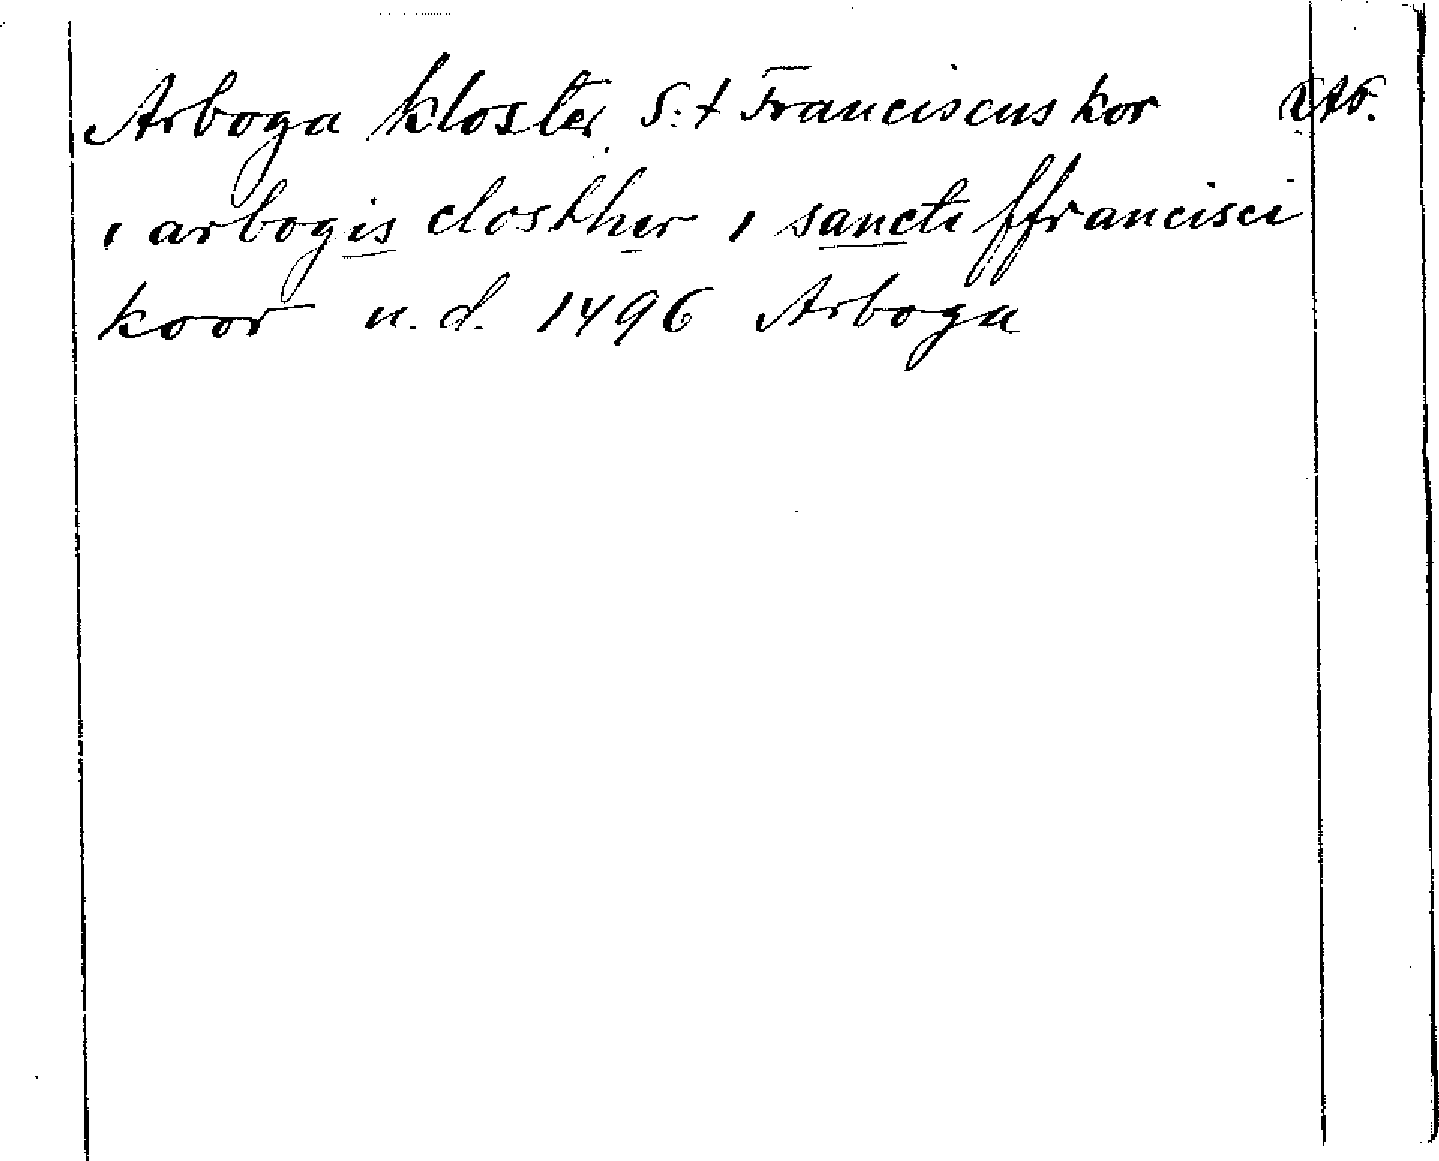 Arboga kloster S:t Franciscus kor RAp.
i arbogis closther i sancti ffrancisci
koor u.d. 1496 Arboga